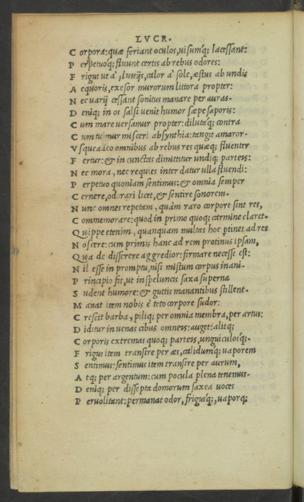 LVCR.
C orpora: quæ feriant oculos, uisumq; lacessant:
P erpetuoq; fluunt certis ab rebus odores:
F rigus ut a' fluuijs, calor a' sole, æstus ab undis
A equoris, exesor murorum littora propter:
N ec uarij cessant sonitus manare per auras.
D eniq; in os salsi uenit humor sæpe saporis:
C um mare uersamur propter: dilutaq; contra
C um tuimur misceri absynthia: tangit amaror.
V sque adeo omnibus ab rebus res quæq; fluenter
F ertur: & in cunctas dimittitur undiq; parteis:
N ec mora, nec requies inter datur ulla fluendi:
P erpetuo quoniam sentimus: & omnia semper
C ernere, odorari licet, & sentire sonorem.
N unc omnes repetam, quàm raro corpore sint res,
C ommemorare: quod in primo quoq; carmine claret.
Q uippe etenim, quanquam multas hoc pertinet ad res
N oscere: cum primis hanc ad rem protinus ipsam,
Q ua de disserere aggredior: firmare necesse est:
N il esse in promptu, nisi mistum corpus inani.
P rincipio fit, ut in speluncis saxa superna
S udent humore: & guttis manantibus stillent.
M anat item nobis é toto corpore sudor:
C rescit barba, piliq; per omnia membra, per artus:
D iditur in uenas cibus omneis: auget: alitq;
C orporis extremas quoq; parteis, unguiculosq;.
F rigus item transire per æs, calidumq; uaporem
S entimus: sentimus item transire per aurum,
A tq; per argentum: cum pocula plena tenemus.
D eniq; per dissepta domorum saxea uoces
P eruolitant: permanat odor, frigusq;, uaporq;